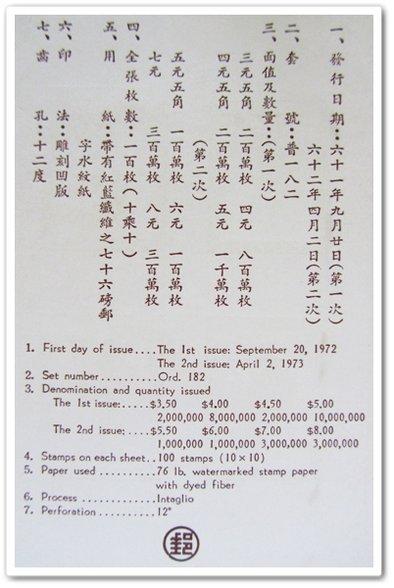 一、發行日期：六十一年九月廿日(第一次)
六十二年四月二日(第二次)
二、套 號：普一八二
三、面值及數量：(第一次)
三元五角 二百萬枚 四元 八百萬枚
四元五角 二百萬枚 五元 一千萬枚
(第二次)
五元五角 一百萬枚 六元 一百萬枚
七元 三百萬枚 八元 三百萬枚
四、全張枚數：一百枚(十乘十)
五、用 紙：帶有紅藍纖維之七十六磅郵
字水紋紙
六、印 法：雕刻凹版
七、齒 孔：十二度
1. First day of issue....The 1st issue: September 20, 1972
The 2nd issue: April 2, 1973
2. Set number..........Ord. 182
3. Denomination and quantity issued
The 1st issue:.....$3.50 $4.00 $4.50 $5.00
2,000,000 8,000,000 2,000,000 10,000,000
The 2nd issue:....$5.50 $6.00 $7.00 $8.00
1,000,000 1,000,000 3,000,000 3,000,000
4. Stamps on each sheet..100 stamps (10×10)
5. Paper used ..........76 lb. watermarked stamp paper
with dyed fiber
6. Process .............Intaglio
7. Perforation..........12°
郵